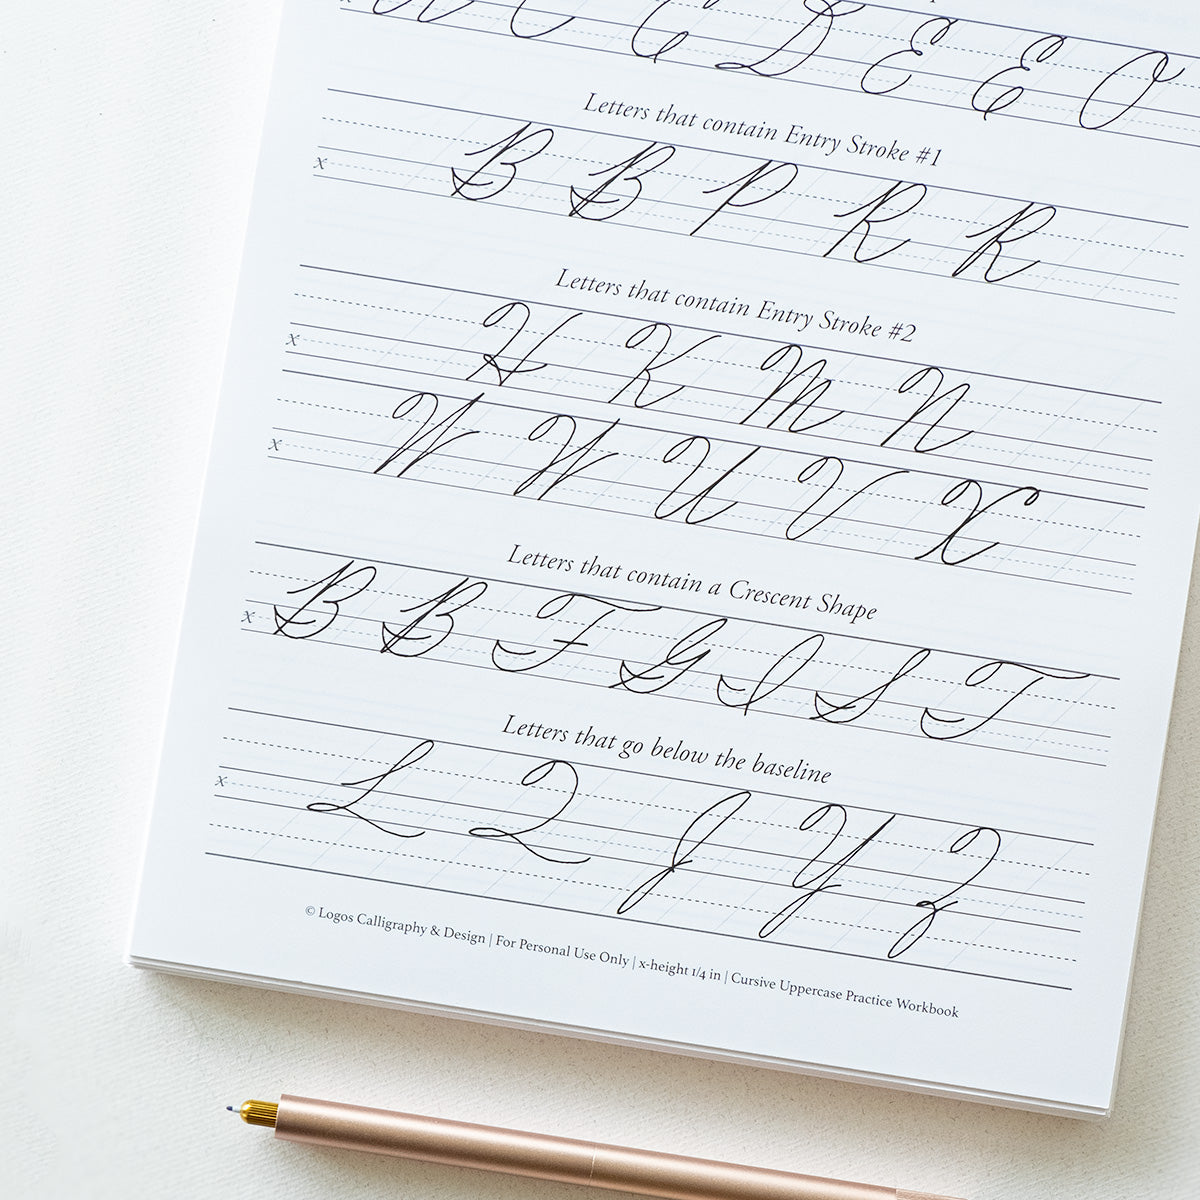 C C D E E O
Letters that contain Entry Stroke #1
x B B P R R
Letters that contain Entry Stroke #2
x H K M N
x W W U V X
Letters that contain a Crescent Shape
x B B F G I S T
Letters that go below the baseline
x L Q J Y Z
© Logos Calligraphy & Design | For Personal Use Only | x-height 1/4 in | Cursive Uppercase Practice Workbook